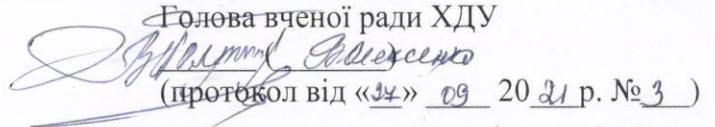 Голова вченої ради ХДУ
(протокол від «27» 09 2021 р. № 3)